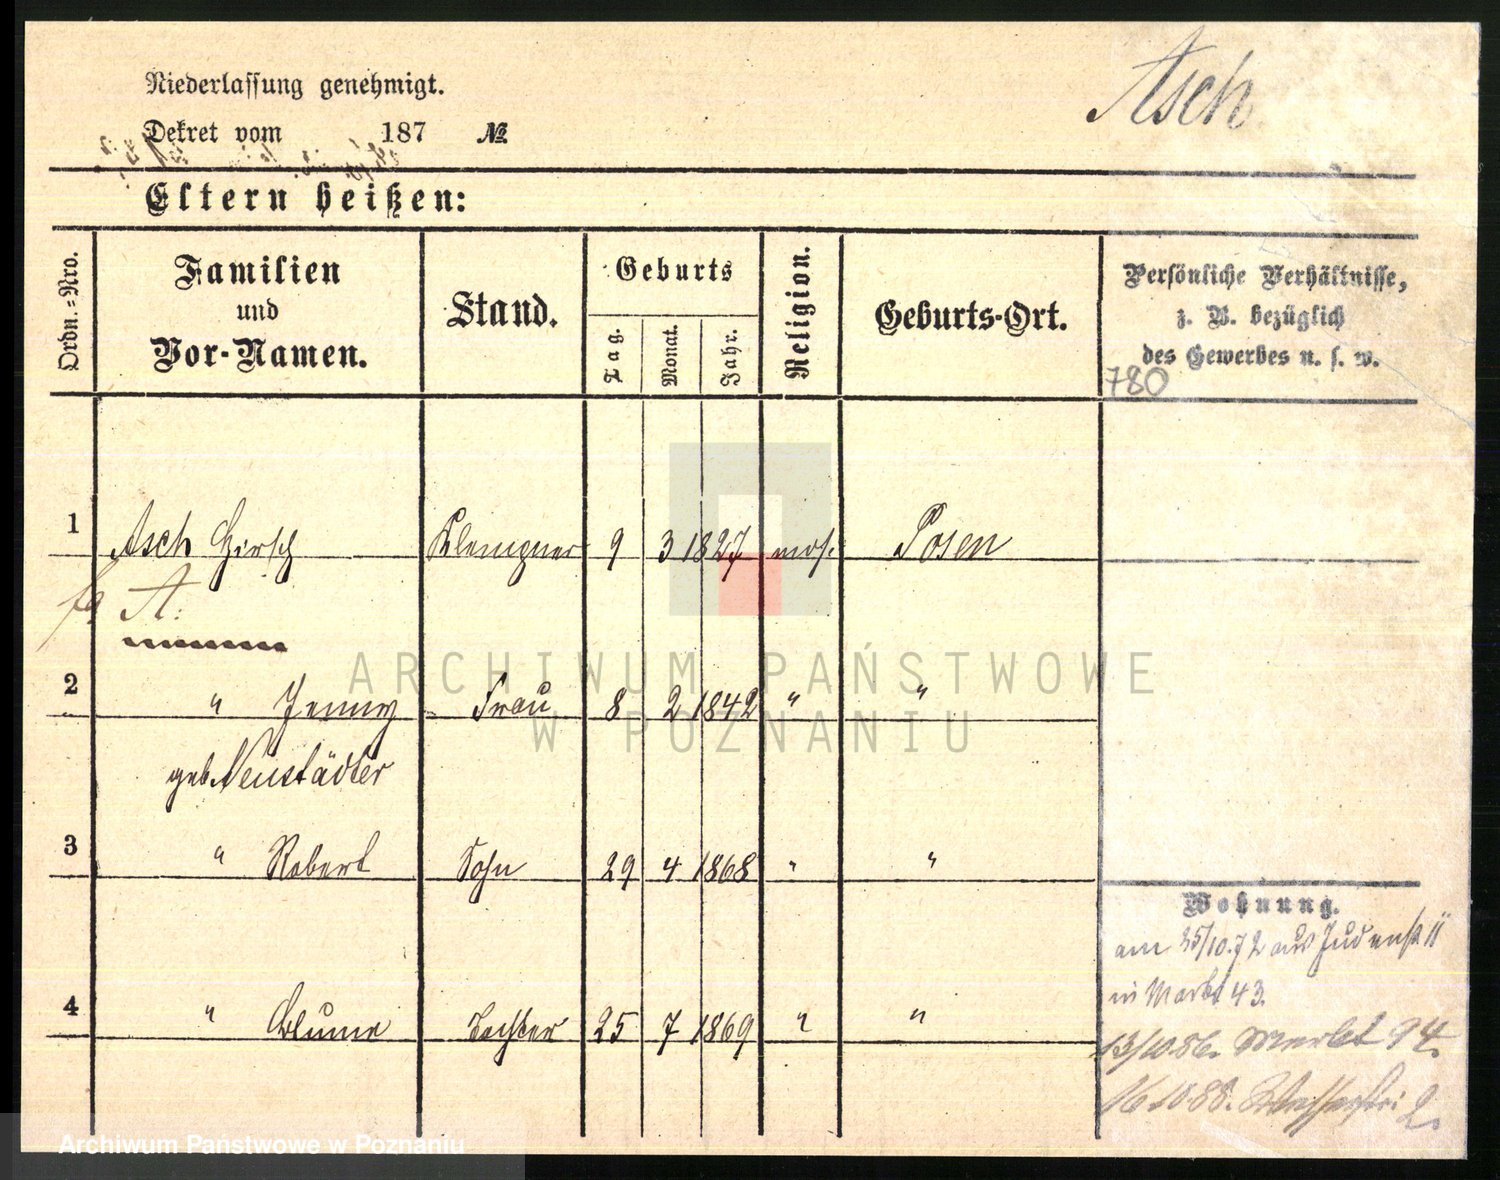 Asch
Niederlassung genehmigt.
Dekret vom 187 №
Eltern heißen:
Ordn.=Nro.
Familien
und
Vor-Namen.
Stand.
Geburts
Tag.
Monat.
Jahr.
Religion.
Geburts-Ort.
Persönliche Verhältnisse,
z. B. bezüglich
des Gewerbes u. s. w.
780
1 Asch Hirsch Klempner 9 3 1827 mos. Posen
A.
2 " Jenny Frau 8 2 1842 " "
geb. Neustädter
3 " Robert Sohn 29 4 1868 " "
Wohnung.
am 25/10.72 aus Judenst 11
in Markt 43.
4 " Blume Tochter 25 7 1869 " "
13/10 86. Markt 94.
16 10 88. Wasserstr: 2.
ARCHIWUM PAŃSTWOWE
W POZNANIU
Archiwum Państwowe w Poznaniu